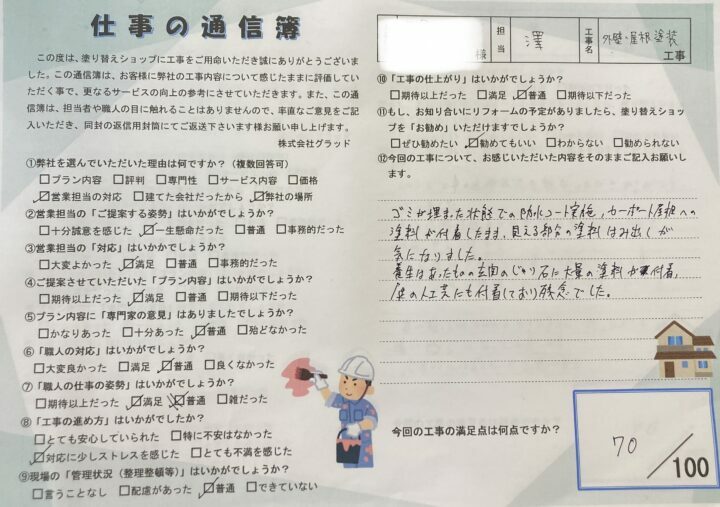 仕事の通信簿
この度は、塗り替えショップに工事をご用命いただき誠にありがとうございま
した。この通信簿は、お客様に弊社の工事内容について感じたままに評価してい
ただく事で、更なるサービスの向上の参考にさせていただきます。また、この通
信簿は、担当者や職人の目に触れることはありませんので、率直なご意見をご記
入いただき、同封の返信用封筒にてご返送下さいます様お願い申し上げます。
株式会社グラッド
①弊社を選んでいただいた理由は何ですか？（複数回答可）
□プラン内容 □評判 □専門性 □サービス内容 □価格
☑営業担当の対応 □建てた会社だったから ☑弊社の場所
②営業担当の「ご提案する姿勢」はいかがでしょうか？
□十分誠意を感じた ☑一生懸命だった □普通 □事務的だった
③営業担当の「対応」はいかかでしょうか？
□大変よかった ☑満足 □普通 □事務的だった
④ご提案させていただいた「プラン内容」はいかがでしょうか？
□期待以上だった ☑満足 □普通 □期待以下だった
⑤プラン内容に「専門家の意見」はありましたでしょうか？
□かなりあった □十分あった ☑普通 □殆どなかった
⑥「職人の対応」はいかがでしょうか？
□大変良かった □満足 ☑普通 □良くなかった
⑦「職人の仕事の姿勢」はいかがでしょうか？
□期待以上だった ☑満足 ☒普通 □雑だった
⑧「工事の進め方」はいかがでしたか？
□とても安心していられた □特に不安はなかった
☑対応に少しストレスを感じた □とても不満を感じた
⑨現場の「管理状況（整理整頓等）」はいかがでしょうか？
□言うことなし □配慮があった ☑普通 □できていない
様 担当 澤 工事名 外壁・屋根塗装 工事
⑩「工事の仕上がり」はいかがでしょうか？
□期待以上だった □満足 ☑普通 □期待以下だった
⑪もし、お知り合いにリフォームの予定がありましたら、塗り替えショッ
プを「お勧め」いただけますでしょうか？
□ぜひ勧めたい ☑勧めてもいい □わからない □勧められない
⑫今回の工事について、お感じいただいた内容をそのままご記入お願いし
ます。
ゴミが埋まった状態での防水コート実施、カーポート屋根への
塗料が付着したまま、見える部分の塗料はみ出しが
気になりました。
養生はあったものの玄関のじゃり石に大量の塗料が付着、
庭の人工芝にも付着しており残念でした。
今回の工事の満足点は何点ですか？
70／100